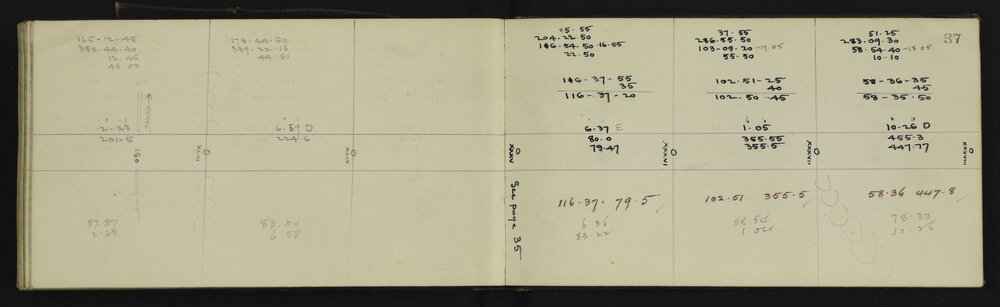 165-12-45
358-44-40
12.45
45-00
2-23
201-5
150
87.37
2.23
174-44-50
339-22-15
44-50
6.59 D
224.6
XLIX
83.00
6.58
15.55
204.22.50
146-54-50-16.55
22.50
116-37-55
35
116-37-20
6.37 E
80.0
79.47
XXXV
See page 35
116-37. 79.5
6 36
83 22
37.55
286.55.50
103-09.20-17.55
55.50
102.51-25
40
102.50.45
1.05
355.55
355.5
XXXVI
102.51 355.5
88.54
1.04
37
51.25
283.09.30
58.54.40-18.05
10-10
58-36-35
45
58-35.50
10.26 D
455.3
447.77
XXXVII
XXXVIII
58.36 447.8
78.33
10.26